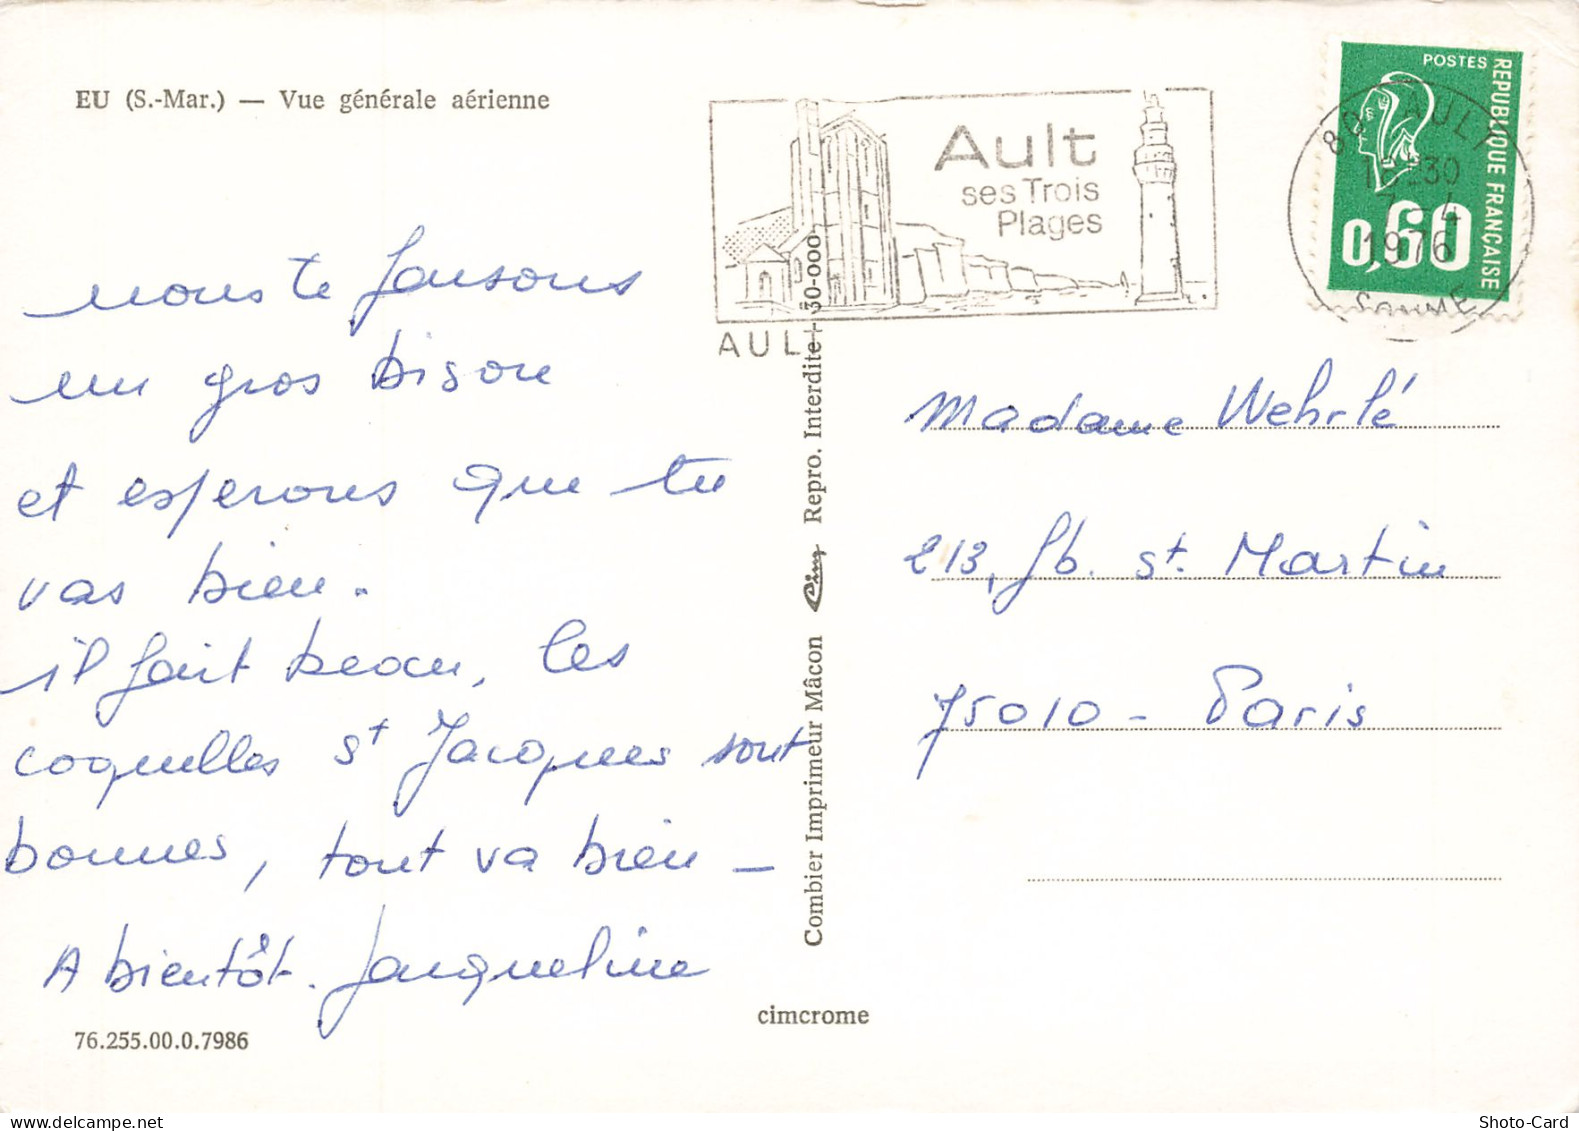 EU (S.-Mar.) — Vue générale aérienne
Ault
ses Trois
Plages
AULT
POSTES
REPUBLIQUE FRANÇAISE
0,60
80 AULT
-30
7-4
1976
SOMME
nous te faisons
un gros bison
et esperons que tu
vas bien.
il fait beau, les
coquelles St Jacques sont
bonnes, tout va bien —
A bientôt. Jacqueline
Madame Wehrlé
213, fb. St. Martin
75010 - Paris
Combier Imprimeur Mâcon Cim Repro. Interdite 30-000
cimcrome
76.255.00.0.7986
delcampe.net
Shoto-Card